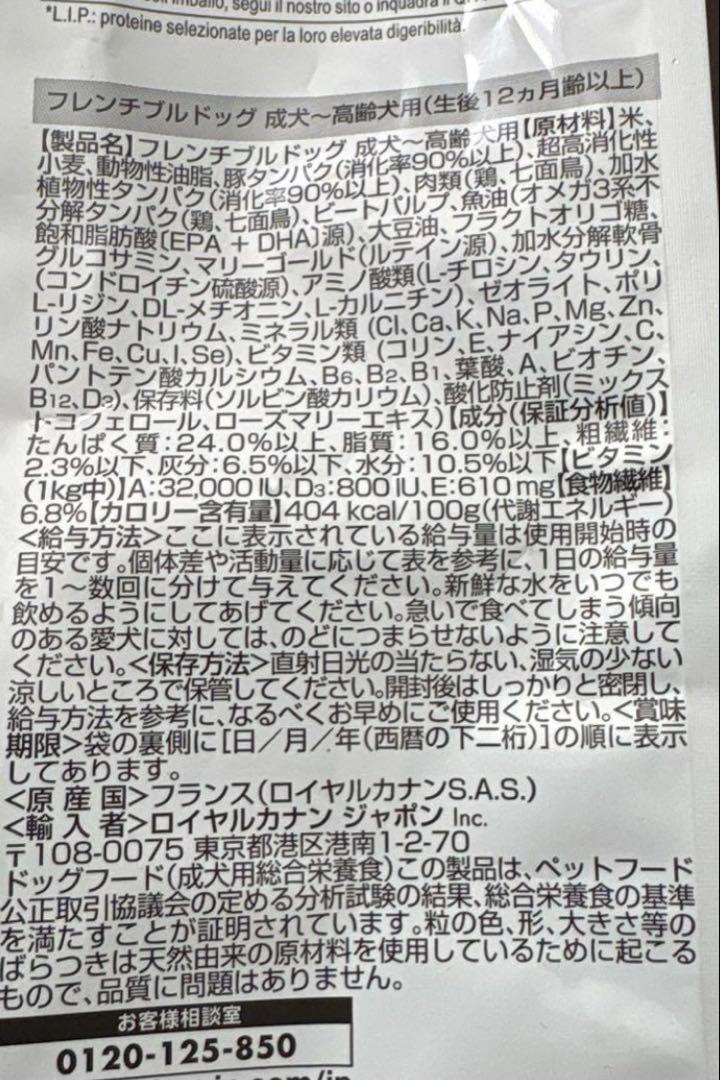 segui il nostro sito o inquadra il
*L.I.P.: proteine selezionate per la loro elevata digeribilità.
フレンチブルドッグ 成犬～高齢犬用(生後12ヵ月齢以上)
【製品名】フレンチブルドッグ 成犬～高齢犬用【原材料】米、
小麦、動物性油脂、豚タンパク(消化率90%以上)、超高消化性
植物性タンパク(消化率90%以上)、肉類(鶏、七面鳥)、加水
分解タンパク(鶏、七面鳥)、ビートパルプ、魚油(オメガ3系不
飽和脂肪酸〔EPA + DHA〕源)、大豆油、フラクトオリゴ糖、
グルコサミン、マリーゴールド(ルテイン源)、加水分解軟骨
(コンドロイチン硫酸源)、アミノ酸類(L-チロシン、タウリン、
L-リジン、DL-メチオニン、L-カルニチン)、ゼオライト、ポリ
リン酸ナトリウム、ミネラル類 (Cl、Ca、K、Na、P、Mg、Zn、
Mn、Fe、Cu、I、Se)、ビタミン類 (コリン、E、ナイアシン、C、
パントテン酸カルシウム、B6、B2、B1、葉酸、A、ビオチン、
B12、D3)、保存料(ソルビン酸カリウム)、酸化防止剤(ミックス
トコフェロール、ローズマリーエキス)【成分(保証分析値)】
たんぱく質:24.0%以上、脂質:16.0%以上、粗繊維:
2.3%以下、灰分:6.5%以下、水分:10.5%以下【ビタミン
(1kg中)】A:32,000 IU、D3:800 IU、E:610 mg【食物繊維】
6.8%【カロリー含有量】404 kcal/100g(代謝エネルギー)
<給与方法>ここに表示されている給与量は使用開始時の
目安です。個体差や活動量に応じて表を参考に、1日の給与量
を1～数回に分けて与えてください。新鮮な水をいつでも
飲めるようにしてあげてください。急いで食べてしまう傾向
のある愛犬に対しては、のどにつまらせないように注意して
ください。<保存方法>直射日光の当たらない、湿気の少ない
涼しいところで保管してください。開封後はしっかりと密閉し、
給与方法を参考に、なるべくお早めにご使用ください。<賞味
期限>袋の裏側に[日/月/年(西暦の下二桁)]の順に表示
してあります。
<原 産 国>フランス(ロイヤルカナンS.A.S.)
<輸 入 者>ロイヤルカナン ジャポン Inc.
〒108-0075 東京都港区港南1-2-70
ドッグフード(成犬用総合栄養食)この製品は、ペットフード
公正取引協議会の定める分析試験の結果、総合栄養食の基準
を満たすことが証明されています。粒の色、形、大きさ等の
ばらつきは天然由来の原材料を使用しているために起こる
もので、品質に問題はありません。
お客様相談室
0120-125-850